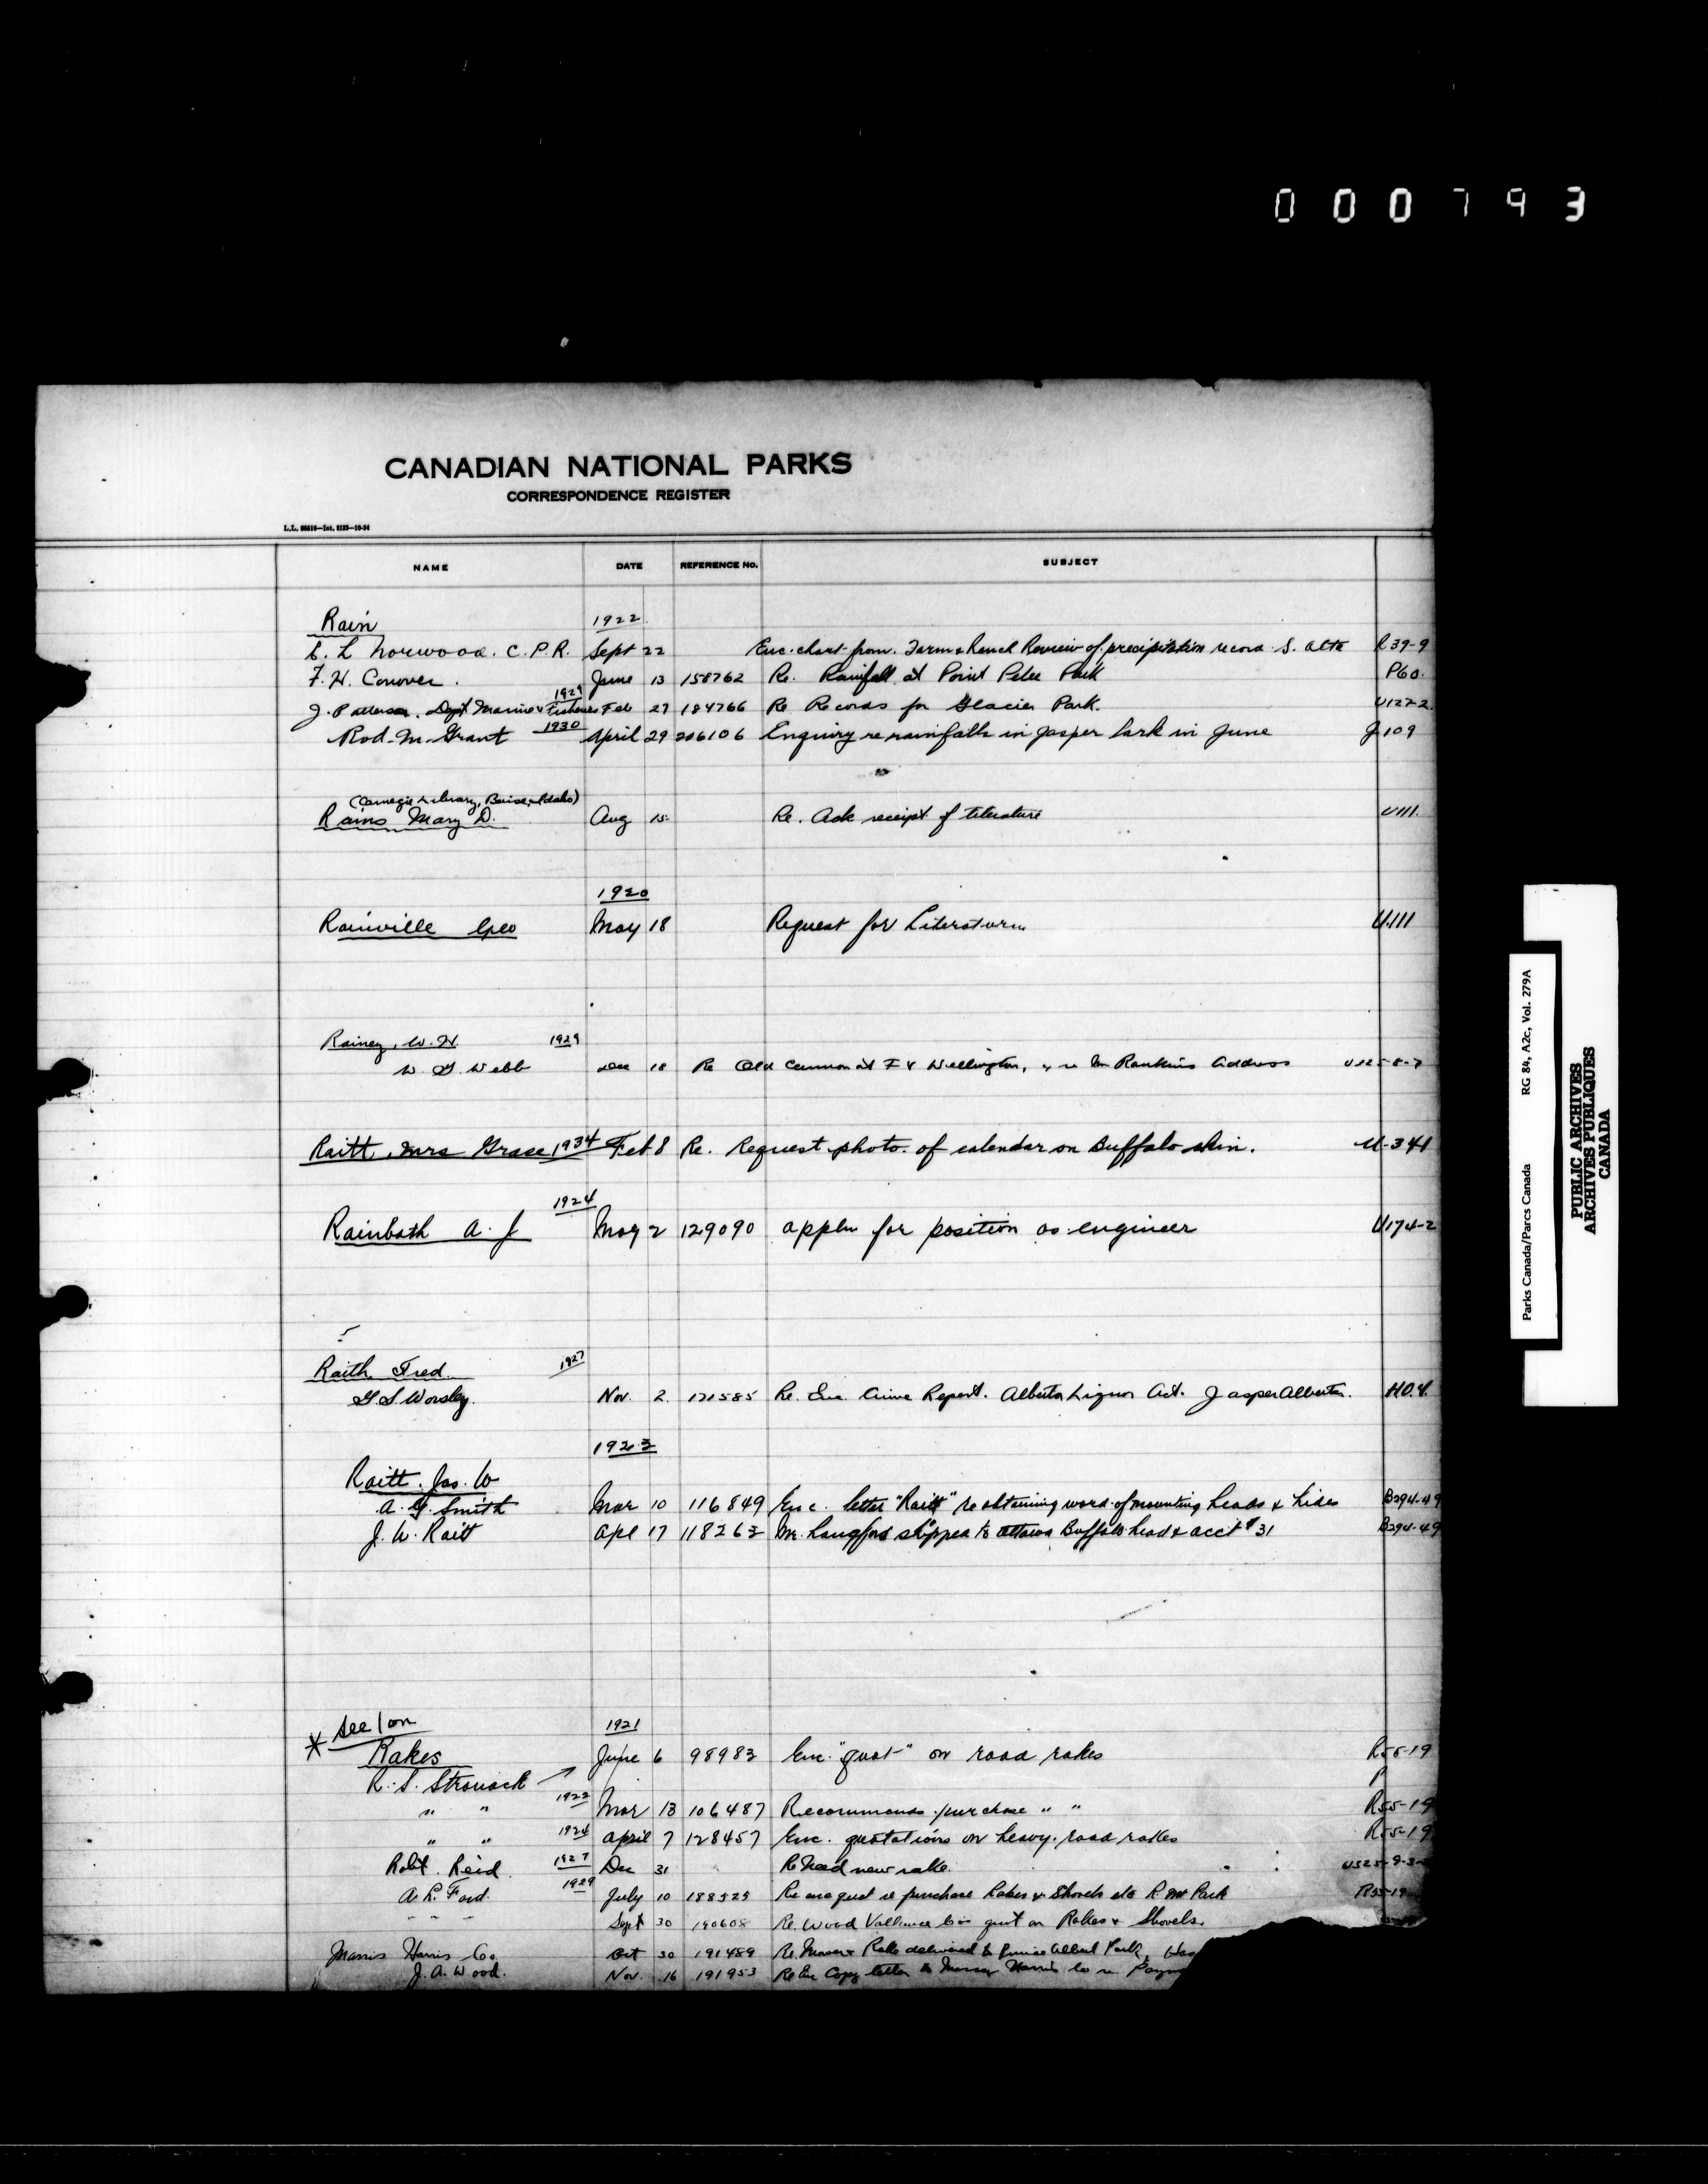 000793
CANADIAN NATIONAL PARKS
CORRESPONDENCE REGISTER
NAME DATE REFERENCE No. SUBJECT
Rain 1922
C. L Norwood. C.P.R. Sept 22 Enc. chart from Farm & Ranch Review of precipitation record S. Alta R39-9
F. H. Conover. June 13 158762 Re. Rainfall at Point Pelee Park P60.
1929
J. Patterson. Dept Marine & Fisheries Feb 27 184766 Re Records for Glacier Park. U122-2
Rod. M. Grant 1930 April 29 206106 Enquiry re rainfalls in Jasper Park in June J109
(Carnegie Library, Boise, Idaho)
Rains Mary D. Aug 15 Re. Ack receipt of literature U111.
1920
Rainville Geo May 18 Request for Literature U.111
Rainey, W. H. 1929
W. G. Webb Dec 18 Re Old Cannon at Ft Wellington, & re Mr Rankins address U325-8-7
Raitt, Mrs Grace 1934 Feb 8 Re. Request photo. of calendar on Buffalo skin. U-341
1924
Rainboth A. J May 2 129090 appln for position as engineer U174-2
Raith Fred 1927
G S. Worsley. Nov. 2. 171585 Re. Enc. Crime Report. Alberta Liquor Act. Jasper Alberta. H0.4.
1923
Raitt. Jas. W
A. G. Smith Mar 10 116849 Enc. letter "Raitt" re obtaining word of mounting heads & hides B294-49
J. W. Raitt Apl 17 118263 Mr. Langford shipped to Ottawa Buffalo head & acct $31 B294-49
* See / on 1921
Rakes June 6 98983 Enc. "quot" on road rakes R55-19
R. S. Stronach
" " 1922 Mar 13 106487 Recommends purchase " " R55-19
" " 1924 April 7 128457 Enc. quotations on heavy road rakes R55-19
Robt. Reid 1927 Dec 31 Re Need new rake. U325-9-3
A. L. Ford. 1929 July 10 188525 Re enc quot re purchase Rakes & Shovels etc R. Mt Park R55-19
" " " Sept 30 190608 Re. Wood Vallance Co's quot on Rakes & Shovels.
Massis Harris Co. Oct 30 191489 Re. Mower & Rake delivered to Prince Albert Park,
J. A. Wood. Nov. 16 191953 Re Enc Copy letter to Massey Harris Co re
Parks Canada/Parcs Canada RG 84, A2c, Vol. 279A
PUBLIC ARCHIVES
ARCHIVES PUBLIQUES
CANADA